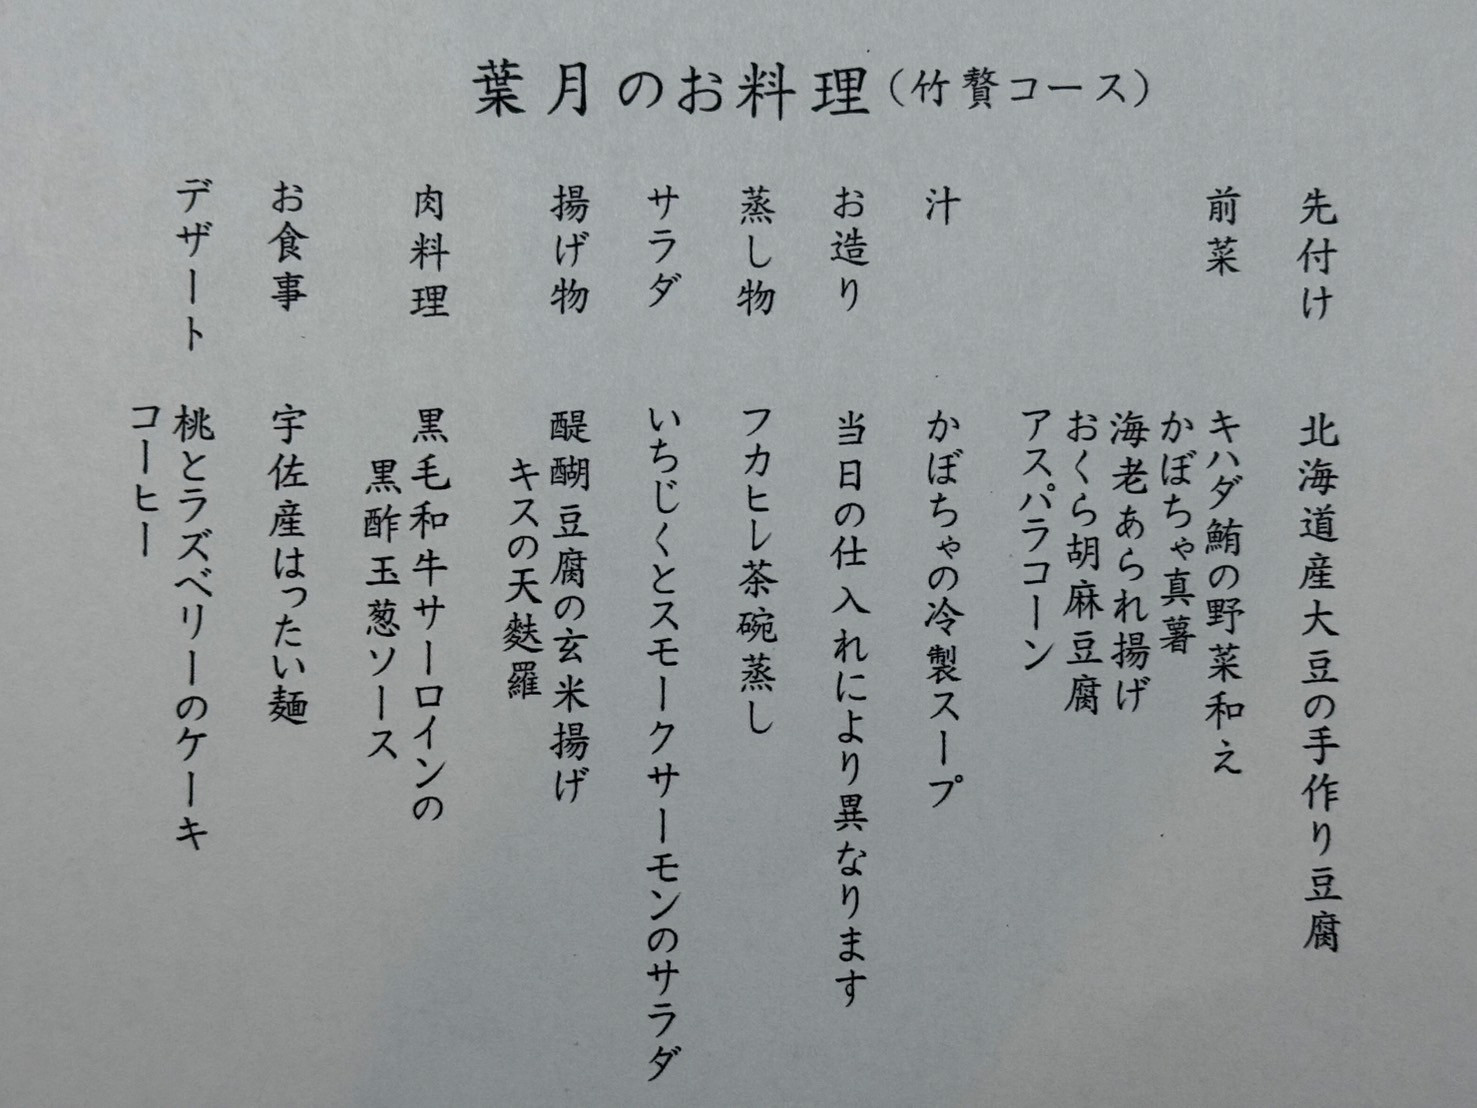 葉月のお料理（竹贅コース）
先付け　北海道産大豆の手作り豆腐
前菜　キハダ鮪の野菜和え
かぼちゃ真薯
海老あられ揚げ
おくら胡麻豆腐
アスパラコーン
汁　かぼちゃの冷製スープ
お造り　当日の仕入れにより異なります
蒸し物　フカヒレ茶碗蒸し
サラダ　いちじくとスモークサーモンのサラダ
揚げ物　醍醐豆腐の玄米揚げ
キスの天麩羅
肉料理　黒毛和牛サーロインの
黒酢玉葱ソース
お食事　宇佐産はったい麺
デザート　桃とラズベリーのケーキ
コーヒー